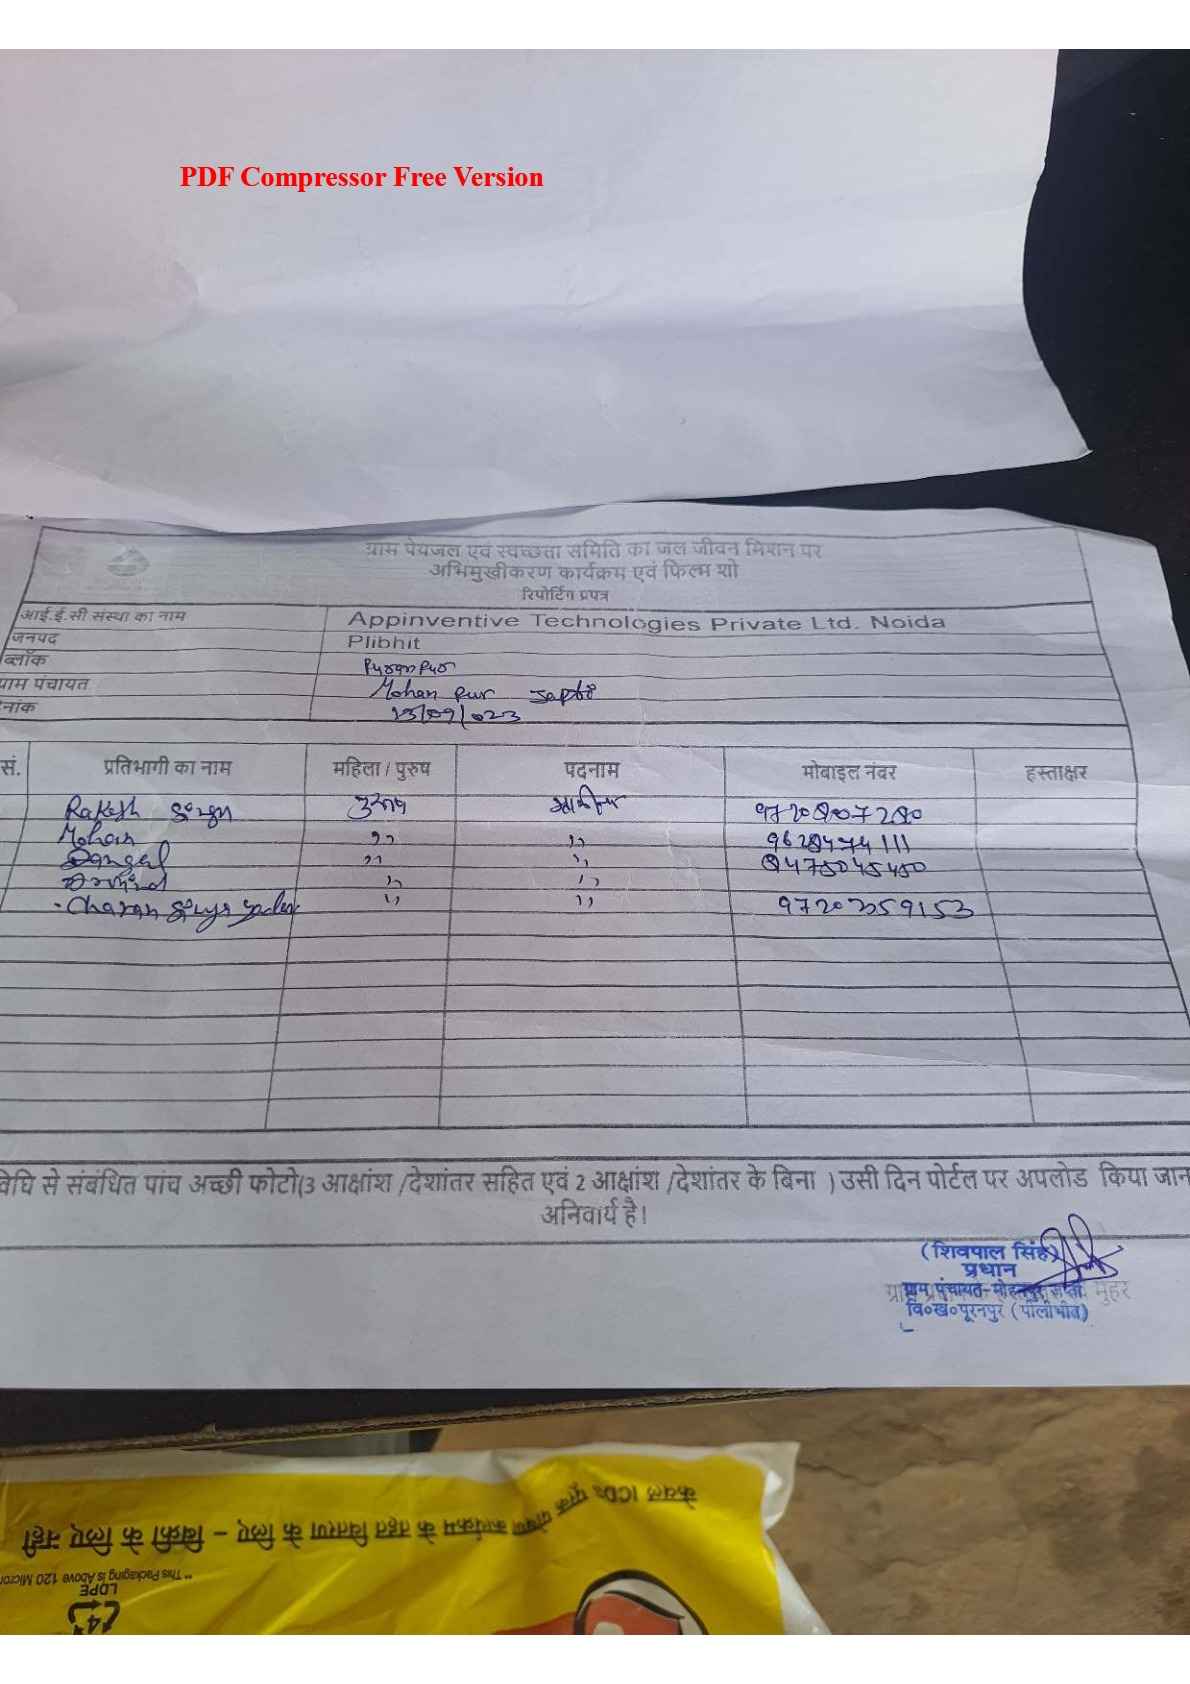 PDF Compressor Free Version
ग्राम पेयजल एवं स्वच्छता समिति का जल जीवन मिशन पर
अभिमुखीकरण कार्यक्रम एवं फिल्म शो
रिपोर्टिंग प्रपत्र
आई.ई.सी संस्था का नाम Appinventive Technologies Private Ltd. Noida
जनपद Plibhit
ब्लॉक Puranpur
ग्राम पंचायत Mohan pur
नांक
सं. प्रतिभागी का नाम महिला / पुरुष पदनाम मोबाइल नंबर हस्ताक्षर
Rakesh पुरुष
Mohan ,, ,,
,, ,,
,, ,,
Charan ,, ,, 9720359153
विधि से संबंधित पांच अच्छी फोटो(3 आक्षांश /देशांतर सहित एवं 2 आक्षांश /देशांतर के बिना ) उसी दिन पोर्टल पर अपलोड किया जान
अनिवार्य है।
(शिवपाल सिंह)
प्रधान
ग्राम पंचायत-मोहनपुर जप्ती मुहर
वि०ख०पूरनपुर (पीलीभीत)
केवल ICDS पूरक पोषण कार्यक्रम के तहत वितरण के लिए – बिक्री के लिए नहीं
**This Packaging is Above 120 Micron
LDPE
4